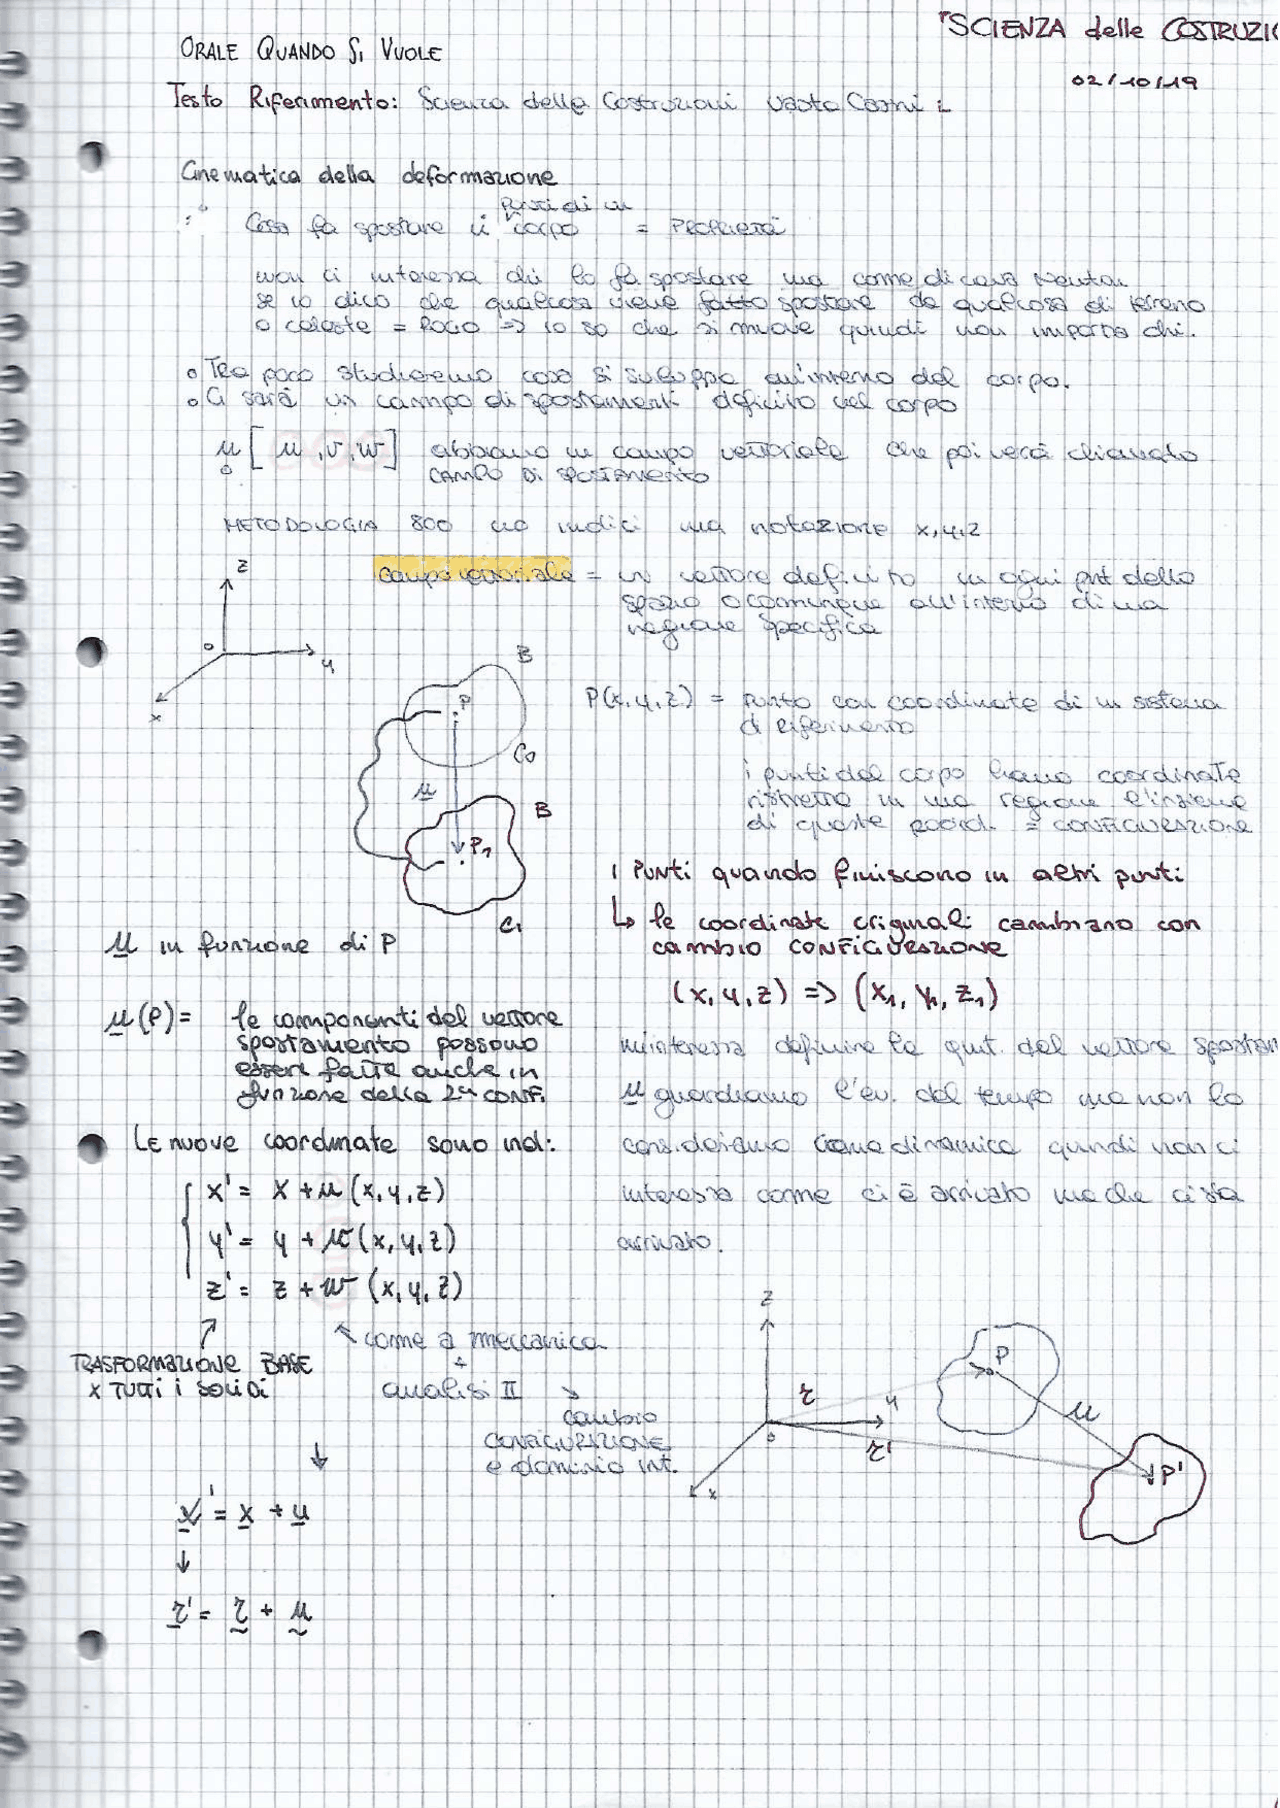 "SCIENZA delle COSTRUZIO
02/10/19
ORALE QUANDO SI VUOLE
Testo Riferimento: Scienza della Costruzioni
Cinematica della deformazione
punti di un
Cosa fa spostare i corpo = PROPRIETÀ
non ci interessa chi lo fa spostare ma come diceva Newton
se io dico che qualcosa viene fatto spostare da qualcosa di terreno
o celeste = POCO => io so che si muove quindi non importa chi.
o Tra poco studieremo cosa si sviluppa all'interno del corpo.
o Ci sarà un campo di spostamenti definito nel corpo
u [u, v, w] abbiamo un campo vettoriale che poi verrà chiamato
CAMPO DI SPOSTAMENTO
METODOLOGIA 800 no indici ma notazione x,y,z
campo vettoriale = un vettore definito in ogni pnt dello
spazio o comunque all'interno di una
regione specifica
z
o
y
x
B
P
C0
u
B
P1
C1
P(x,y,z) = punto con coordinate di un sistema
di riferimento
i punti del corpo hanno coordinate
ristrette in una regione l'insieme
di queste coord. = CONFIGURAZIONE
I PUNTI quando finiscono in altri punti
↳ le coordinate originali cambiano con
cambio CONFIGURAZIONE
(x,y,z) => (x1, y1, z1)
u in funzione di P
u(P) = le componenti del vettore
spostamento possono
essere fatte anche in
funzione della 2a CONF.
mi interessa definire le qnt. del vettore spostam
u guardiamo l'ev. del tempo ma non lo
consideriamo come dinamica quindi non ci
interessa come ci è arrivato ma che ci sia
arrivato.
LE nuove coordinate sono ind:
x' = x + u(x,y,z)
y' = y + v(x,y,z)
z' = z + w(x,y,z)
TRASFORMAZIONE BASE
x TUTTI I SOLIDI
come a meccanica
+
analisi II
cambio
CONFIGURAZIONE
e dominio int.
x' = x + u
r' = r + u
z
o
y
x
r
r'
P
u
P'